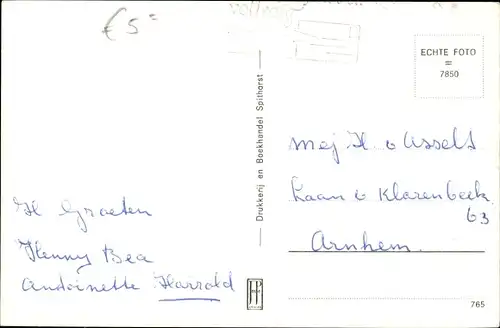 € 5 =
ECHTE FOTO
=
7850
Drukkerij en Boekhandel Spithorst
Mej H. v Asselt
Laan v Klarenbeek
63
Arnhem.
H Groeten
Henny Bea
Andoinette Harrold
765